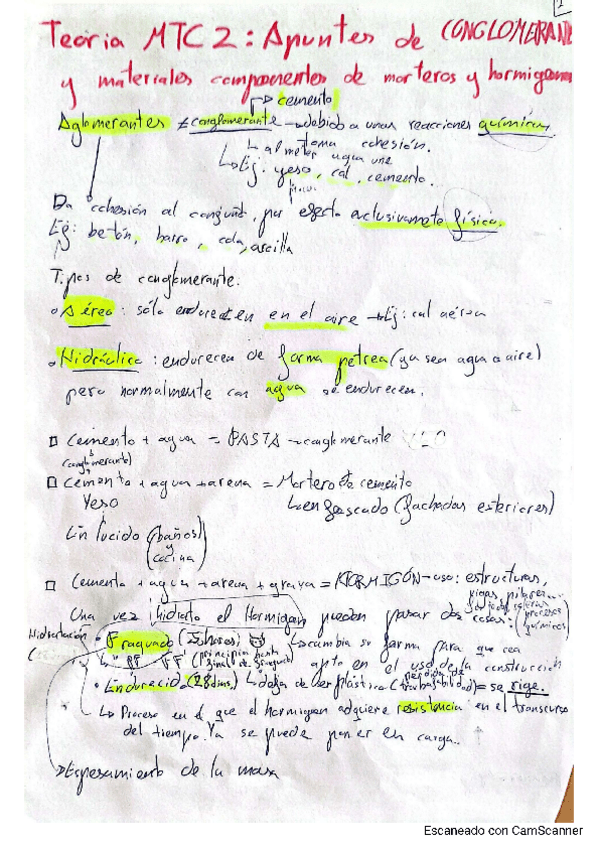 2
Teoría MTC2: Apuntes de CONGLOMERAN
y materiales componentes de morteros y hormigon
cemento
Aglomerantes ≠ conglomerante → debido a unas reacciones químicas
toma cohesión.
al meter agua une
Ej: yeso, cal, cemento.
Da cohesión al conjunto, por efecto exclusivamente física.
Ej: betón, barro, cola, arcilla
Tipos de conglomerante:
Aéreo: sólo endurecen en el aire → Ej: cal aérea
Hidráulico: endurecen de forma petrea (ya sea agua o aire)
pero normalmente con agua se endurecen.
Cemento + agua = PASTA → conglomerante
(conglomerante)
Cemento + agua + arena = Mortero de cemento
Yeso
enfoscado (fachadas exteriores)
Enlucido (baños y cocina)
Cemento + agua + arena + grava = HORMIGÓN → uso: estructuras,
vigas, pilares...
Una vez hidrato el Hormigon pueden pasar dos cosas: (procesos químicos)
Hidratación
Fraguado
cambia su forma para que sea
apto en el uso de la construcción
(principio hasta final de fraguado)
Endurecido (28 dias) → deja de ser plástico (perdida trabajabilidad) = se rige.
Proceso en el que el hormigon adquiere resistencia en el transcurso
del tiempo. Ya se puede poner en carga..
Espesamiento de la masa
Escaneado con CamScanner